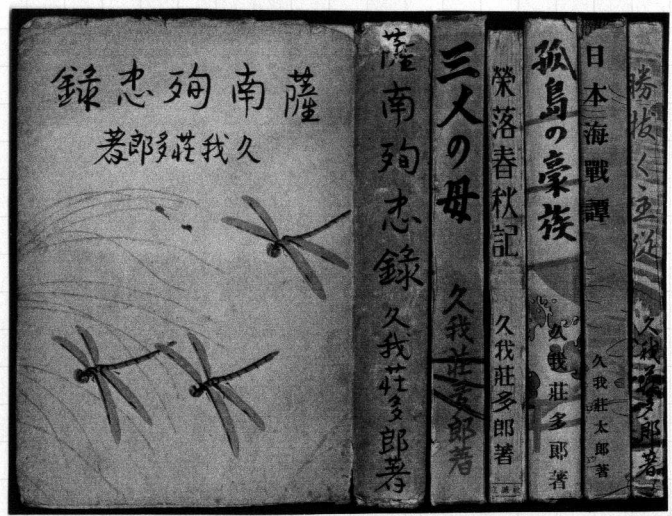 薩南殉忠錄
久我莊多郎著
薩南殉忠錄 久我莊多郎著
三人の母 久我莊多郎著
榮落春秋記 久我莊多郎著
孤島の豪族 久我莊多郎著
日本海戰譚 久我莊太郎著
勝抜く主従 久我莊多郎著